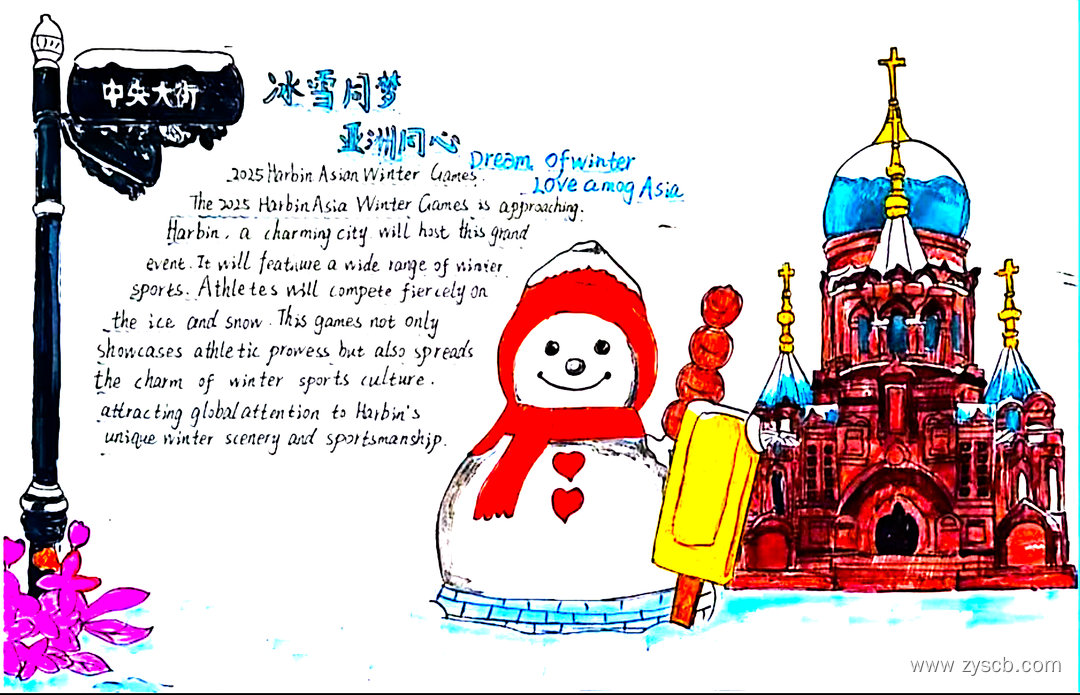 中央大街
冰雪同梦
亚洲同心
Dream of winter
Love amog Asia
2025 Harbin Asian Winter Games.
The 2025 Harbin Asia Winter Games is approaching.
Harbin, a charming city will host this grand
event. It will featuure a wide range of winter
sports. Athletes will compete fiercely on
the ice and snow. This games not only
showcases athletic prowess but also spreads
the charm of winter sports culture.
attracting global attention to Harbin's
unique winter scenery and sportsmanship.
www.zyscb.com